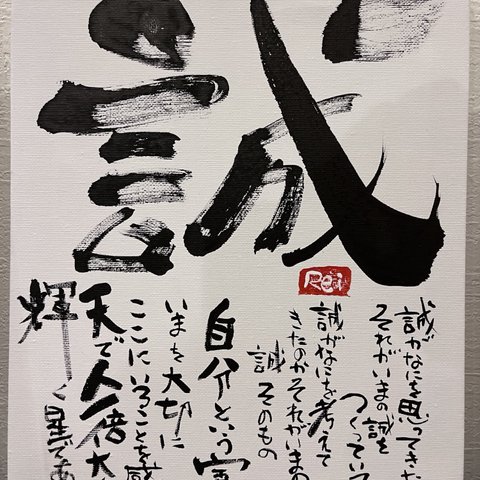 誠
Rei
誠がなにを思ってきた
それがいまの誠を
つくってい
誠がなにを考えて
きたのかそれがいまの
誠そのもの
自分という
いまを大切に
ここにいることを感
天で人一倍大
輝く星であ